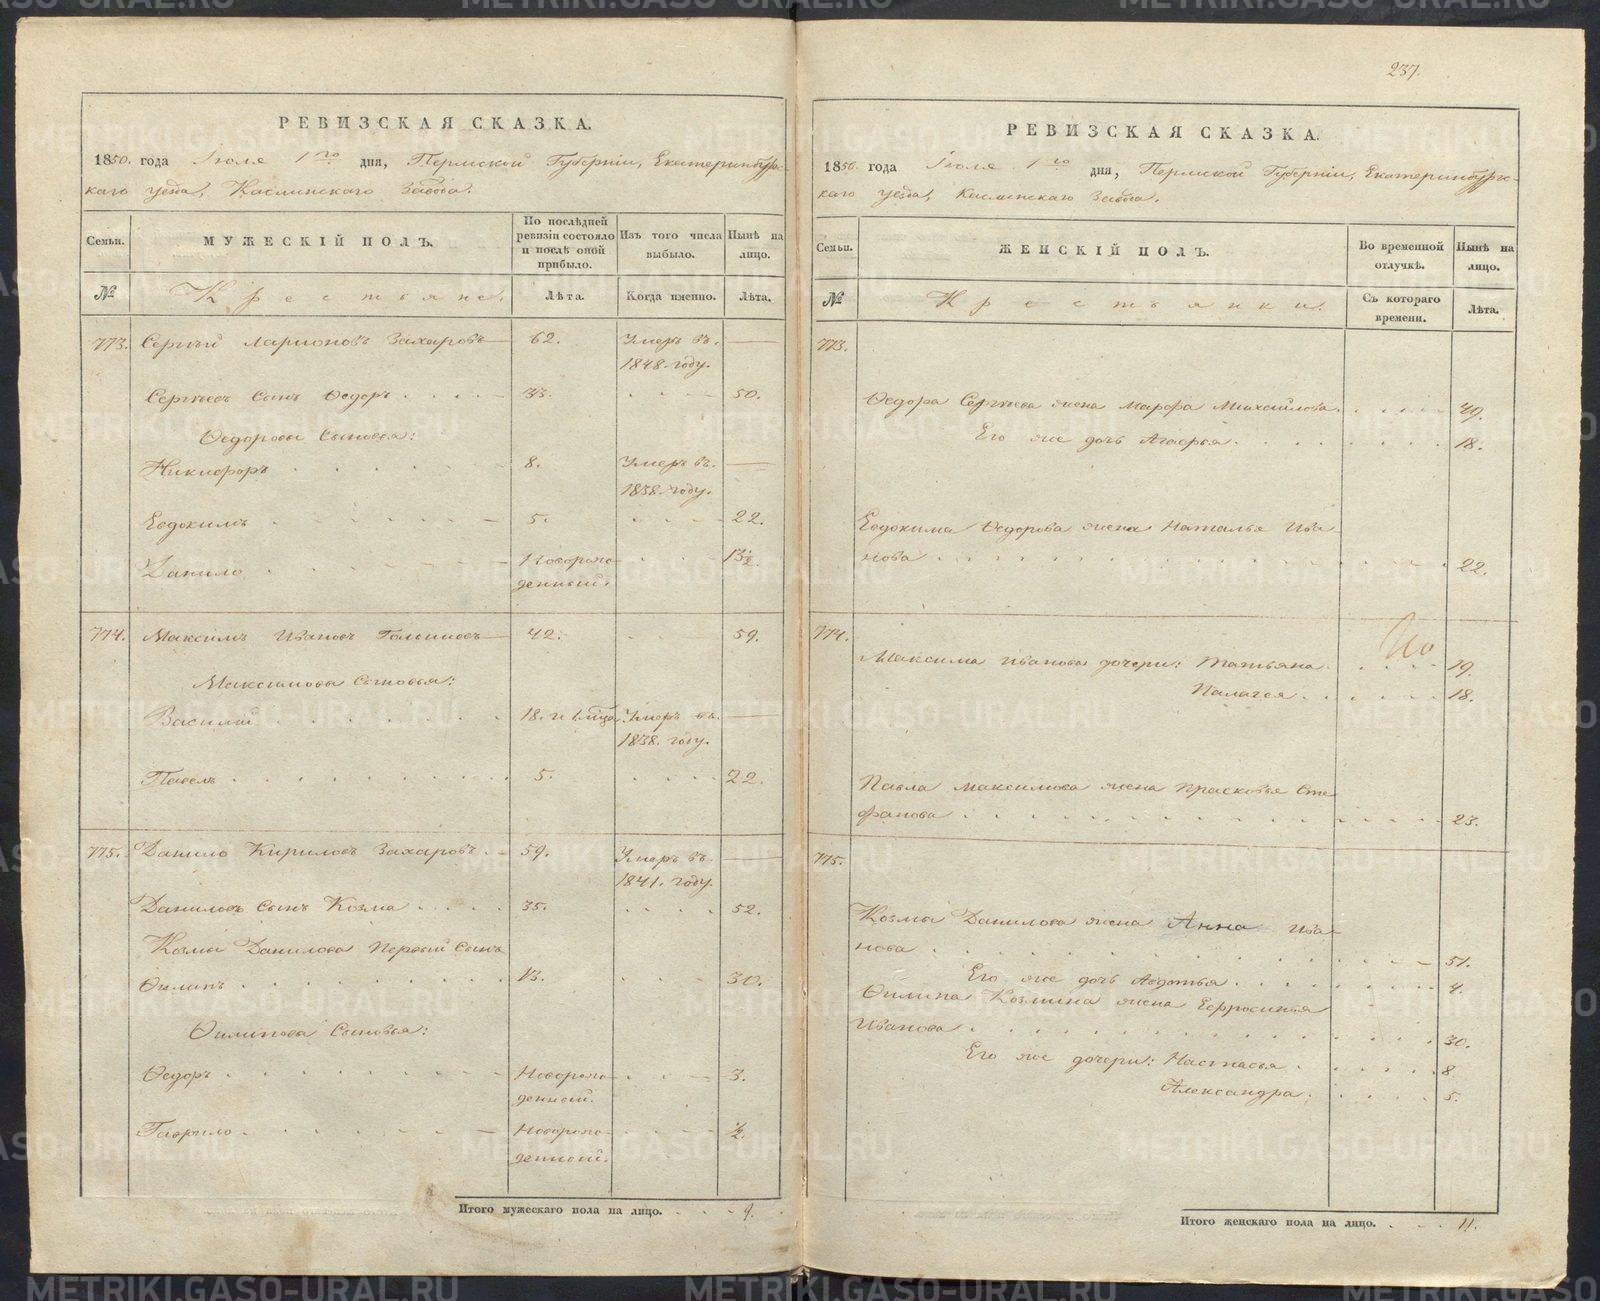 237.
РЕВИЗСКАЯ СКАЗКА.
1850. года Іюля 1го дня, Пермской Губерніи, Екатеринбург-
скаго уѣзда, Каслинскаго Завода.
Семьи. МУЖЕСКІЙ ПОЛЪ. По послѣдней ревизіи состояло и послѣ оной прибыло. Изъ того числа выбыло. Нынѣ на лицо.
№ Крестьяне. Лѣта. Когда именно. Лѣта.
773. Сергѣй Ларіоновъ Захаровъ 62. Умеръ въ —
1848. году.
Сергѣевъ Сынъ Ѳедоръ 33. 50.
Ѳедоровы Сыновья:
Никифоръ 8. Умеръ въ —
1838. году.
Евдокимъ 5. 22.
Данило Новорож- 13½.
денный.
774. Максимъ Ивановъ 42. 59.
Максимовы Сыновья:
Василій 18. Умеръ въ —
1838. году.
Павелъ 5. 22.
775. Данило Кириловъ Захаровъ 59. Умеръ въ —
1841. году.
Даниловъ Сынъ Козма 35. 52.
Козмы Данилова Первый Сынъ
Ѳилипъ 13. 30.
Ѳилиповы Сыновья:
Ѳедоръ Новорож- 3.
денный.
Гаврило Новорож- ½.
денный.
Итого мужескаго пола на лицо. 9.
РЕВИЗСКАЯ СКАЗКА.
1850. года Іюля 1го дня, Пермской Губерніи, Екатеринбург-
скаго уѣзда, Каслинскаго Завода.
Семьи. ЖЕНСКІЙ ПОЛЪ. Во временной отлучкѣ. Нынѣ на лицо.
№ Крестьянки. Съ котораго времени. Лѣта.
773.
Ѳедора Сергѣева жена Марфа Михайлова 49.
Его же дочь Агафья 18.
Евдокима Ѳедорова жена Наталья Ива-
нова 22.
774.
Максима Иванова дочери: Татьяна 19.
Палагея 18.
Павла Максимова жена Прасковья Сте-
фанова 23.
775.
Козмы Данилова жена Анна Ива-
нова 51.
Его же дочь Авдотья 4.
Ѳилипа Козмина жена Ефросинья
Иванова 30.
Его же дочери: Настасья 8
Александра 5.
Итого женскаго пола на лицо. 11.
METRIKI.GASO-URAL.RU